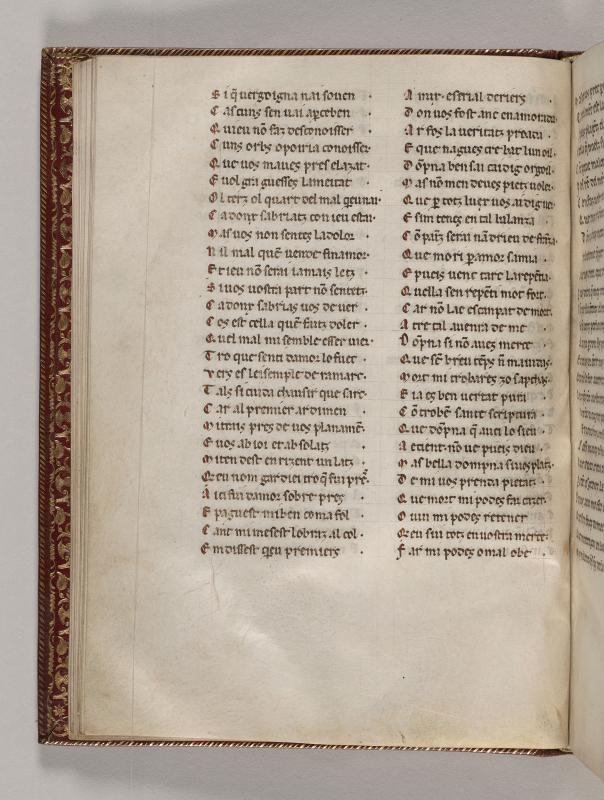 S i q̃ uergoigna nai souen
C ascuns sen uai aꝑceben
Q uieu nõ faz desconoisser
C uns orbs o poiria conoisser
Q ue uos maues pres elazat
E uol gra guesses la meitat
O l terz ol quart del mal
C adonx sabriatz con ieu estau
M as uos non sentez la dolor
N il mal quẽ uen de finamor
E t ieu nõ serai iamais letz
S i uos uostra part nõ sentetz
C adonx sabrias uos de uer
C os est cella quẽ faitz doler
Q uel mal mi semble esser uieu
T ro que senti damor lo fuec
V ers es leisemple de
T als si cuida chaufar que sart
C ar al premier ardimen
M itrais pres de uos planamẽ
E uos ab ioi et ab solatz
M iten dest en rizent un latz
Q eu nom gardiei tro q̃ fui pres
A ici fui damor sobre pres
E paguest miben coma fol
C ant mi mesest lo bratz al col
E m dissest qeu premiers
A mir
D on uos fost anc enamorada
A r fos la ueritatz proada
E que nagues
D õpna ben sai cuidig orgoil
M as nõ men deues pietz uoler
Q ue ꝑ totz luer uos ai dig uer
E sim tenes en tal balanza
C õ
Q ue mori ꝑ amor samia
E pueis uenc tart la repẽtia
Q uella sen repẽti mot fort
C ar nõ lac escampat de mort
A tretal auenra de me
D õpna si nõ aues merce
Q ue sẽ breu tẽps
M ort mi trobares zo sapchas
E ia es ben uertat pura
C õ trobẽ sancta scriptura
Q ue dõpna q̃ auci lo sieu
A ecient nõ ue pueis dieu
M as bella dompna si uos platz
D e mi uos prenda pietatz
Q ue mort mi podes far cazer
O uiu mi podes retener
Q eu sui totz en uostra merce
F ar mi podes o mal o be